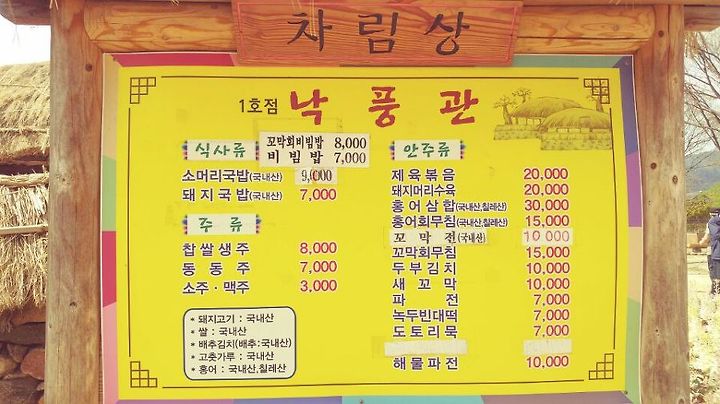 차림상
1호점 낙풍관
식사류
꼬막회비빔밥 8,000
비빔밥 7,000
소머리국밥(국내산) 9,000
돼지국밥(국내산) 7,000
주류
찹쌀생주 8,000
동동주 7,000
소주·맥주 3,000
* 돼지고기 : 국내산
* 쌀 : 국내산
* 배추김치(배추:국내산)
* 고춧가루 : 국내산
* 홍어 : 국내산,칠레산
안주류
제육볶음 20,000
돼지머리수육 20,000
홍어삼합(국내산,칠레산) 30,000
홍어회무침(국내산,칠레산) 15,000
꼬막전(국내산) 10,000
꼬막회무침 15,000
두부김치 10,000
새꼬막 10,000
파전 7,000
녹두빈대떡 7,000
도토리묵 7,000
해물파전 10,000